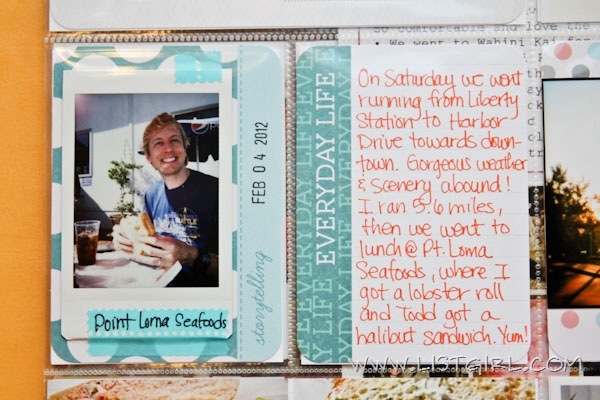 So comfortable and love the
• We went to Wahini Kai for
FEB 04 2012
storytelling
Point Loma Seafoods
EVERYDAY LIFE
EVERYDAY LIFE
EVERYDAY LIFE
On Saturday we went
running from Liberty
Station to Harbor
Drive towards down-
town. Gorgeous weather
& scenery abound!
I ran 5.6 miles,
then we went to
lunch @ Pt. Loma
Seafoods, where I
got a lobster roll
and Todd got a
halibut sandwich. Yum!
WWW.LISTGIRL.COM